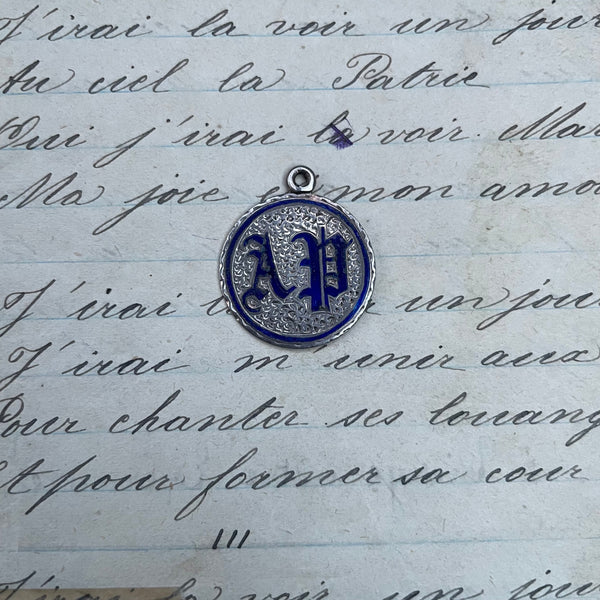 J'irai la voir un jour
Au ciel la Patrie
Oui j'irai la voir Mar
Ma joie et mon amo
AP
J'irai la voir un jou
J'irai m'unir aux
Pour chanter ses louang
Et pour former sa cour
III
J'irai la voir un jou